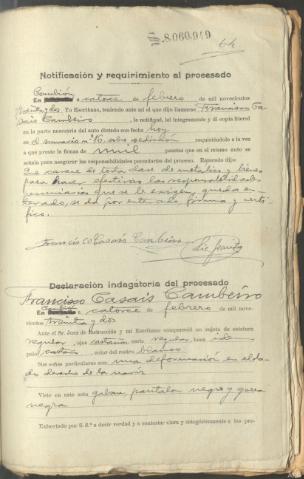 8.060.949
64
Notificación y requirimiento al procesado
Corcubión
En a catorce de febrero de mil novecientos
treinta y dos. Yo Escribano, teniendo ante mí al que dijo llamarse Francisco Ca-
sais Cambeiro, le notifiqué, leí íntegramente y di copia literal
en la parte necesaria del auto dictado con fecha hoy
en el sumario nº 16, sobre sedición requiriéndole a la
vez que preste la fianza de mil pesetas que en el mismo auto se
señala para asegurar las responsabilidades pecuniarias del proceso. Enterado dijo:
Que carece de toda clase de metálico y bienes
para hacer efectivas las responsabilidades
pecuniarias que se le exigen, queda en-
terado, se da por esta forma y certi-
fico.
Francisco Casais Cambeiro
Declaración indagatoria del procesado
Francisco Casais Cambeiro
En a catorce de febrero de mil nove-
cientos treinta y dos
Ante el Sr. Juez de Instrucción y mi Escribano compareció un sujeto de estatura
regular, castaña, regular,
pelo castaño, color del rostro blanco
Sus señas particulares son: una deformación en el la-
do derecho de la nariz
Viste en este acto gabán pantalón negro y
negra
Exhortado por S. S.ª a decir verdad y a contestar clara y categóricamente a las pre-